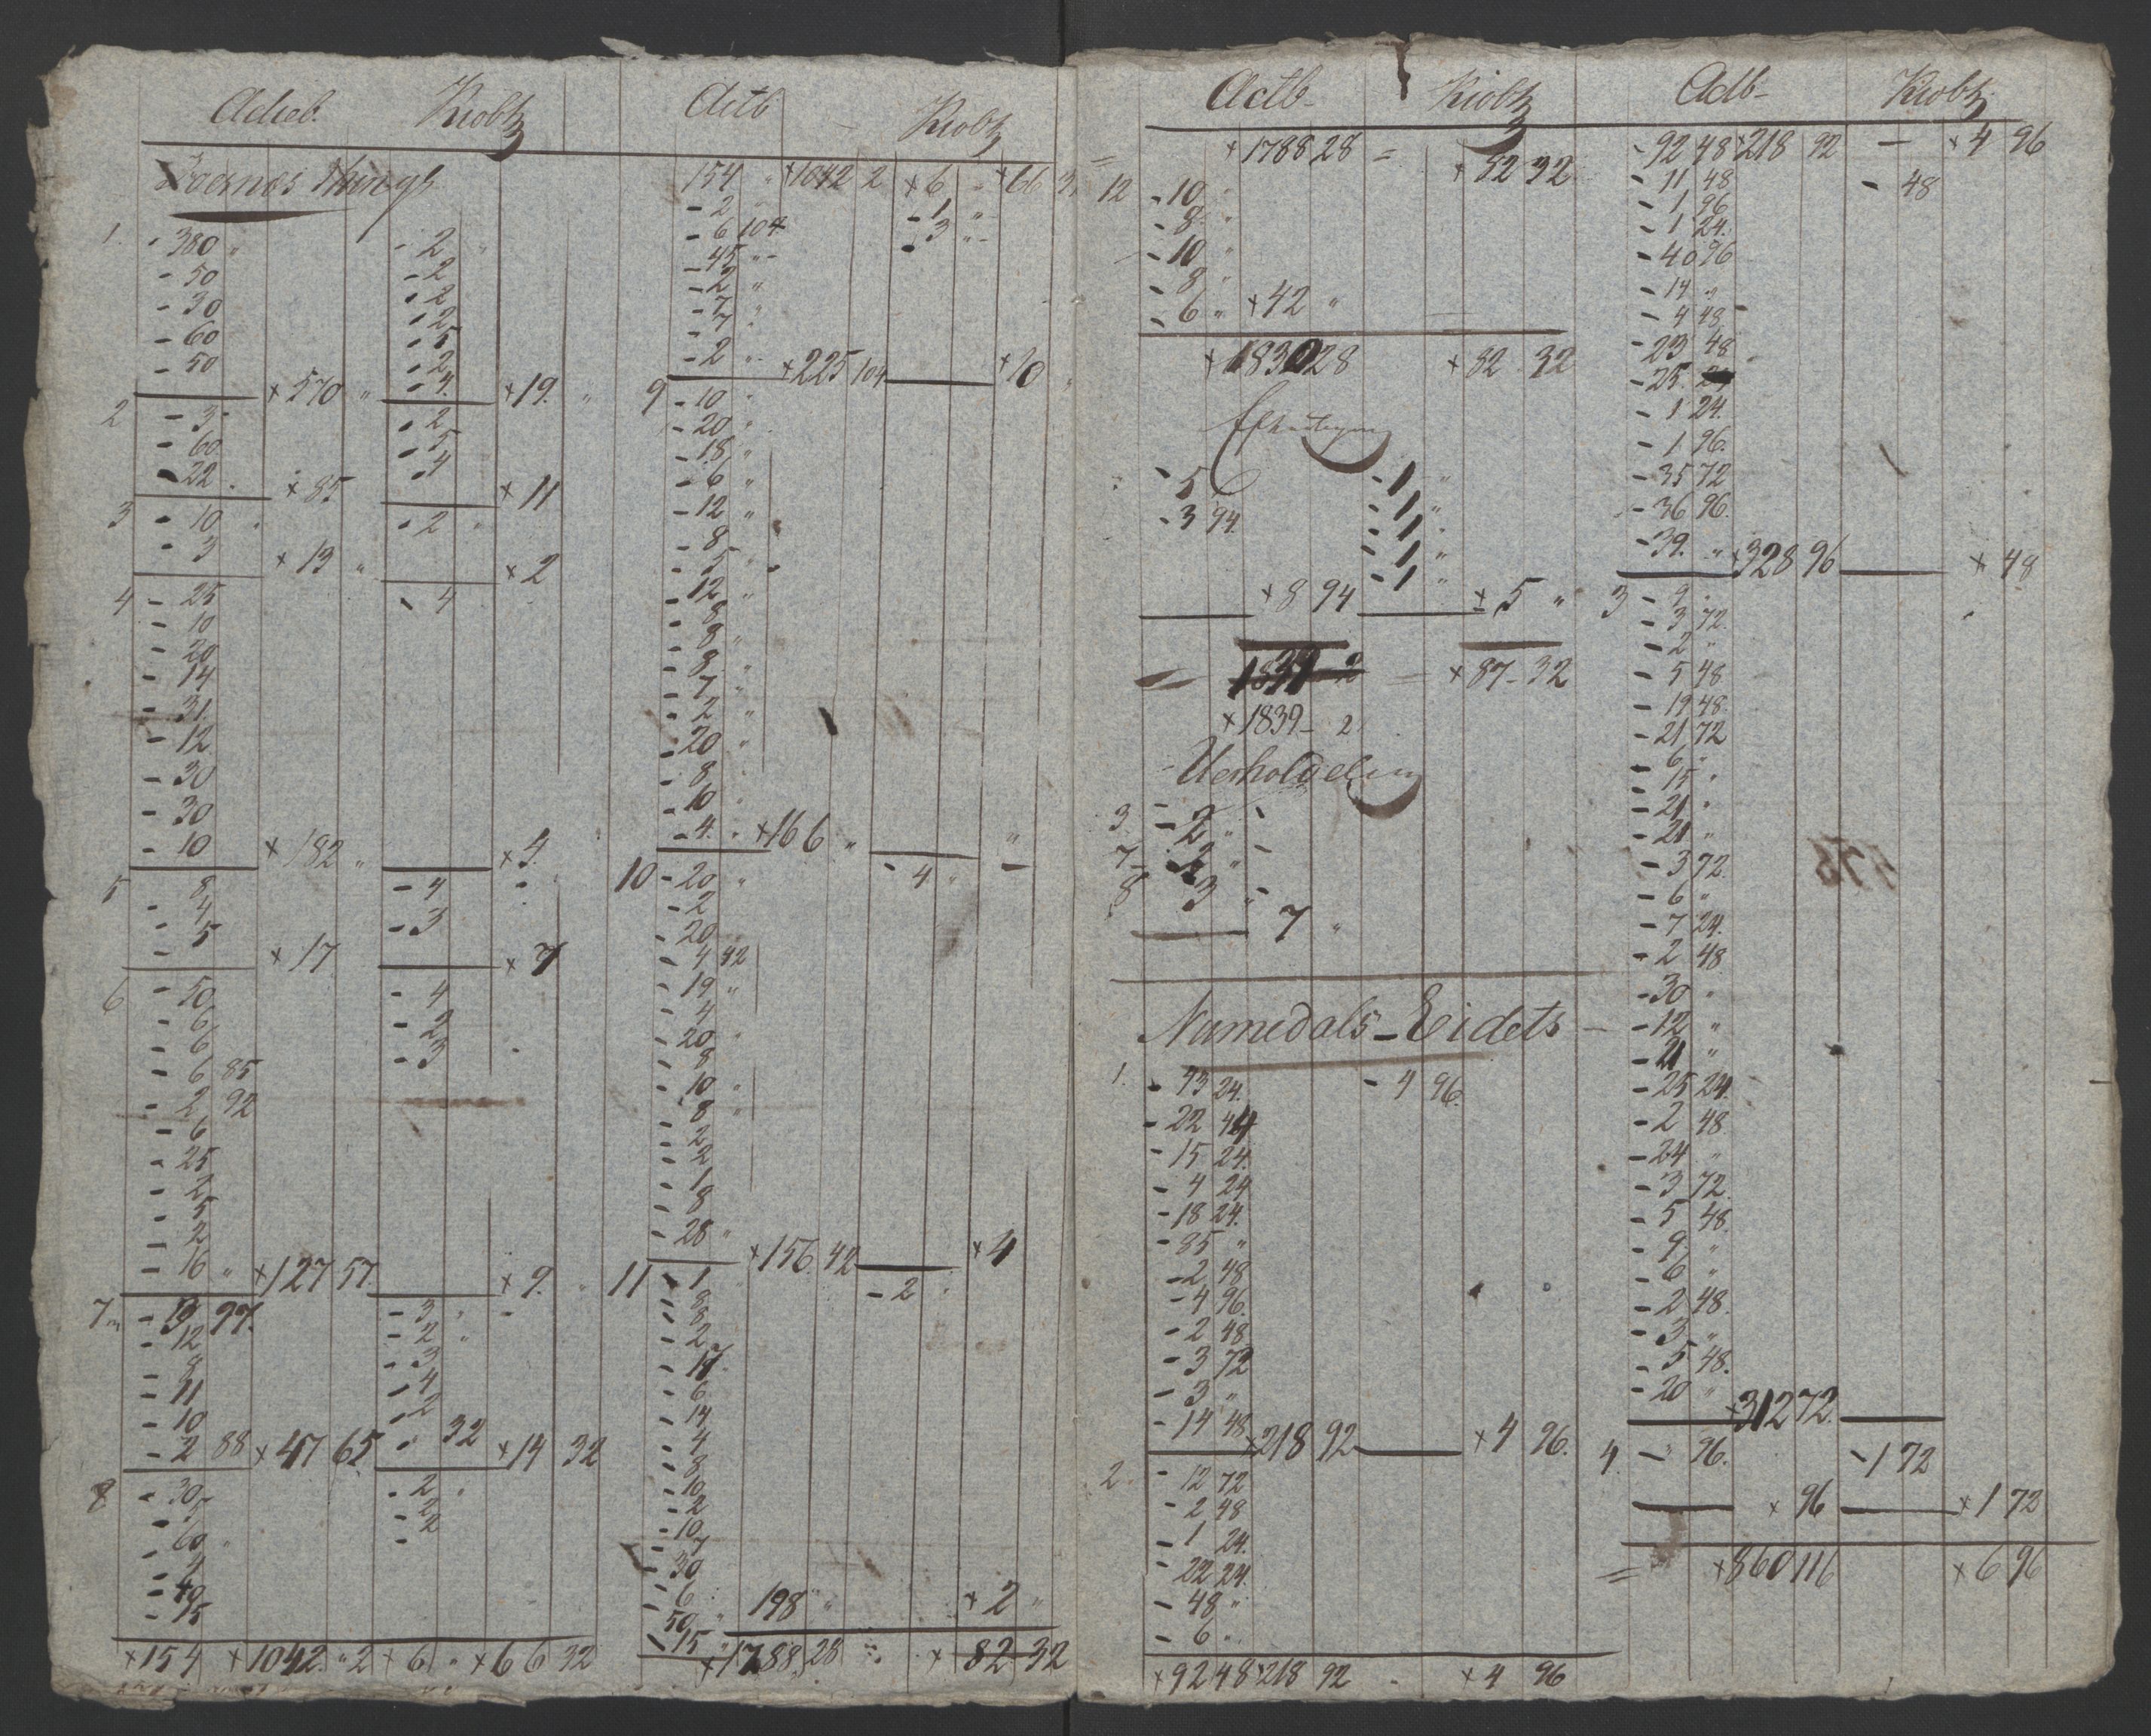 Activb. Kiobtz
1. - 380 " - 2 "
- 50 - 2
- 30 - 2
- 60 - 2
- 50 - 5
- 2
- 4
× 570 " × 19. "
2 - 3 - 2
- 60 - 5
- 22 - 4
× 85 × 11
3 - 10 - 2
- 3
× 13 " × 2
4 - 25 - 4
- 10
- 20
- 14
- 31
- 12
- 30
- 30
- 10
× 182 " × 4
5 - 8 - 4
- 4 - 3
- 5
× 17 × 7
6 - 50 - 4
- 6 - 2
- 6 - 3
- 6 85
- 2 92
- 6
- 25
- 2
- 5
- 2
- 16 "
× 127 57 × 9. "
7 - 3 97. - 3 "
- 12 - 2 "
- 8 - 3
- 11 - 4
- 10 - 2
- 2 88 - " 32
× 47 65 × 14 32
8 - 30 - 2
- 5 - 2
- 60 - 2
- 4
- 40
- 15
× 154 × 1042 " 2 × 6 " × 66 32
Actb Kiobtz
154 " × 1042 2 × 6 " × 66 3
- 2 - 1 "
- 6 104 - 3 "
- 45 "
- 2 "
- 7 "
- 7 "
- 2 "
× 225 104 × 10 "
9 - 10 "
- 20 "
- 18 "
- 6 "
- 12 "
- 8 "
- 5 "
- 12 "
- 8
- 8 "
- 8 "
- 7 "
- 2 "
- 20 "
- 8
- 10
- 4 "
× 166 " "
10 - 20 " - 4 "
- 2
- 20
- 4 42
- 19 "
- 4
- 20
- 8
- 10 "
- 8 "
- 2
- 2
- 1
- 8
- 28 "
× 156 42 × 4
11 - 1 - 2 "
- 8
- 8
- 2
- 11
- 6
- 14
- 4
- 8
- 10
- 2
- 10
- 7
- 30
- 6
50 "
- 15 "
198 " × 2 "
× 1788 28 × 82 32
Actb- Kiobtz
= × 1788 28 = × 82 32
12 - 10
- 8 "
- 10 "
- 8 "
- 6 "
× 42 "
× 1830 28 × 82 32
- 5 - 1 "
- 3 94 - 1 "
- 1 "
- 1 "
- 1 "
× 8 94 × 5 "
- × 87 - 32
× 1839 - 2
3 - 2 " -
7 - 2 " -
8 3 " -
7 "
Namedals - Eidets -
1. - 73 24. - 4 96.
- 22 44
- 15 24.
- 4 24
- 18 24.
- 35 "
- 2 48
- 4 96.
- 2 48
- 3 72
- 3 "
- 14 48
× 218 92 × 4 96.
2. - 12 72
- 2 48
- 1 24.
- 22 24.
- 48 "
- 6 "
× 92 48 × 218 92 × 4 96
Actb- Kiobtz
- 92 48 × 218 92 - × 4 96
- 11 48 - 48
- 1 96
- 1 24.
- 40 96
- 14 "
- 4 48
- 23 48
- 25
- 1 24.
- 1 96.
- 35 72
- 36 96.
- 39. "
× 328 96 × 48
3 - 9 "
- 3 72.
- 2 "
- 5 48
- 19 48.
- 21 72
- 6 "
- 15 "
- 21 "
- 21 "
- 3 72.
- 6 "
- 7 24.
- 2 48
- 30 "
- 12 "
- 21 "
- 25 24.
- 2 48.
- 24 "
- 3 72.
- 5 48.
- 9 "
- 6 "
- 2 48.
- 3 "
- 5 48.
- 20 "
× 312 72.
4. - " 96. - 1 72
× 96 × 1 72
= × 860 116 × 6 96